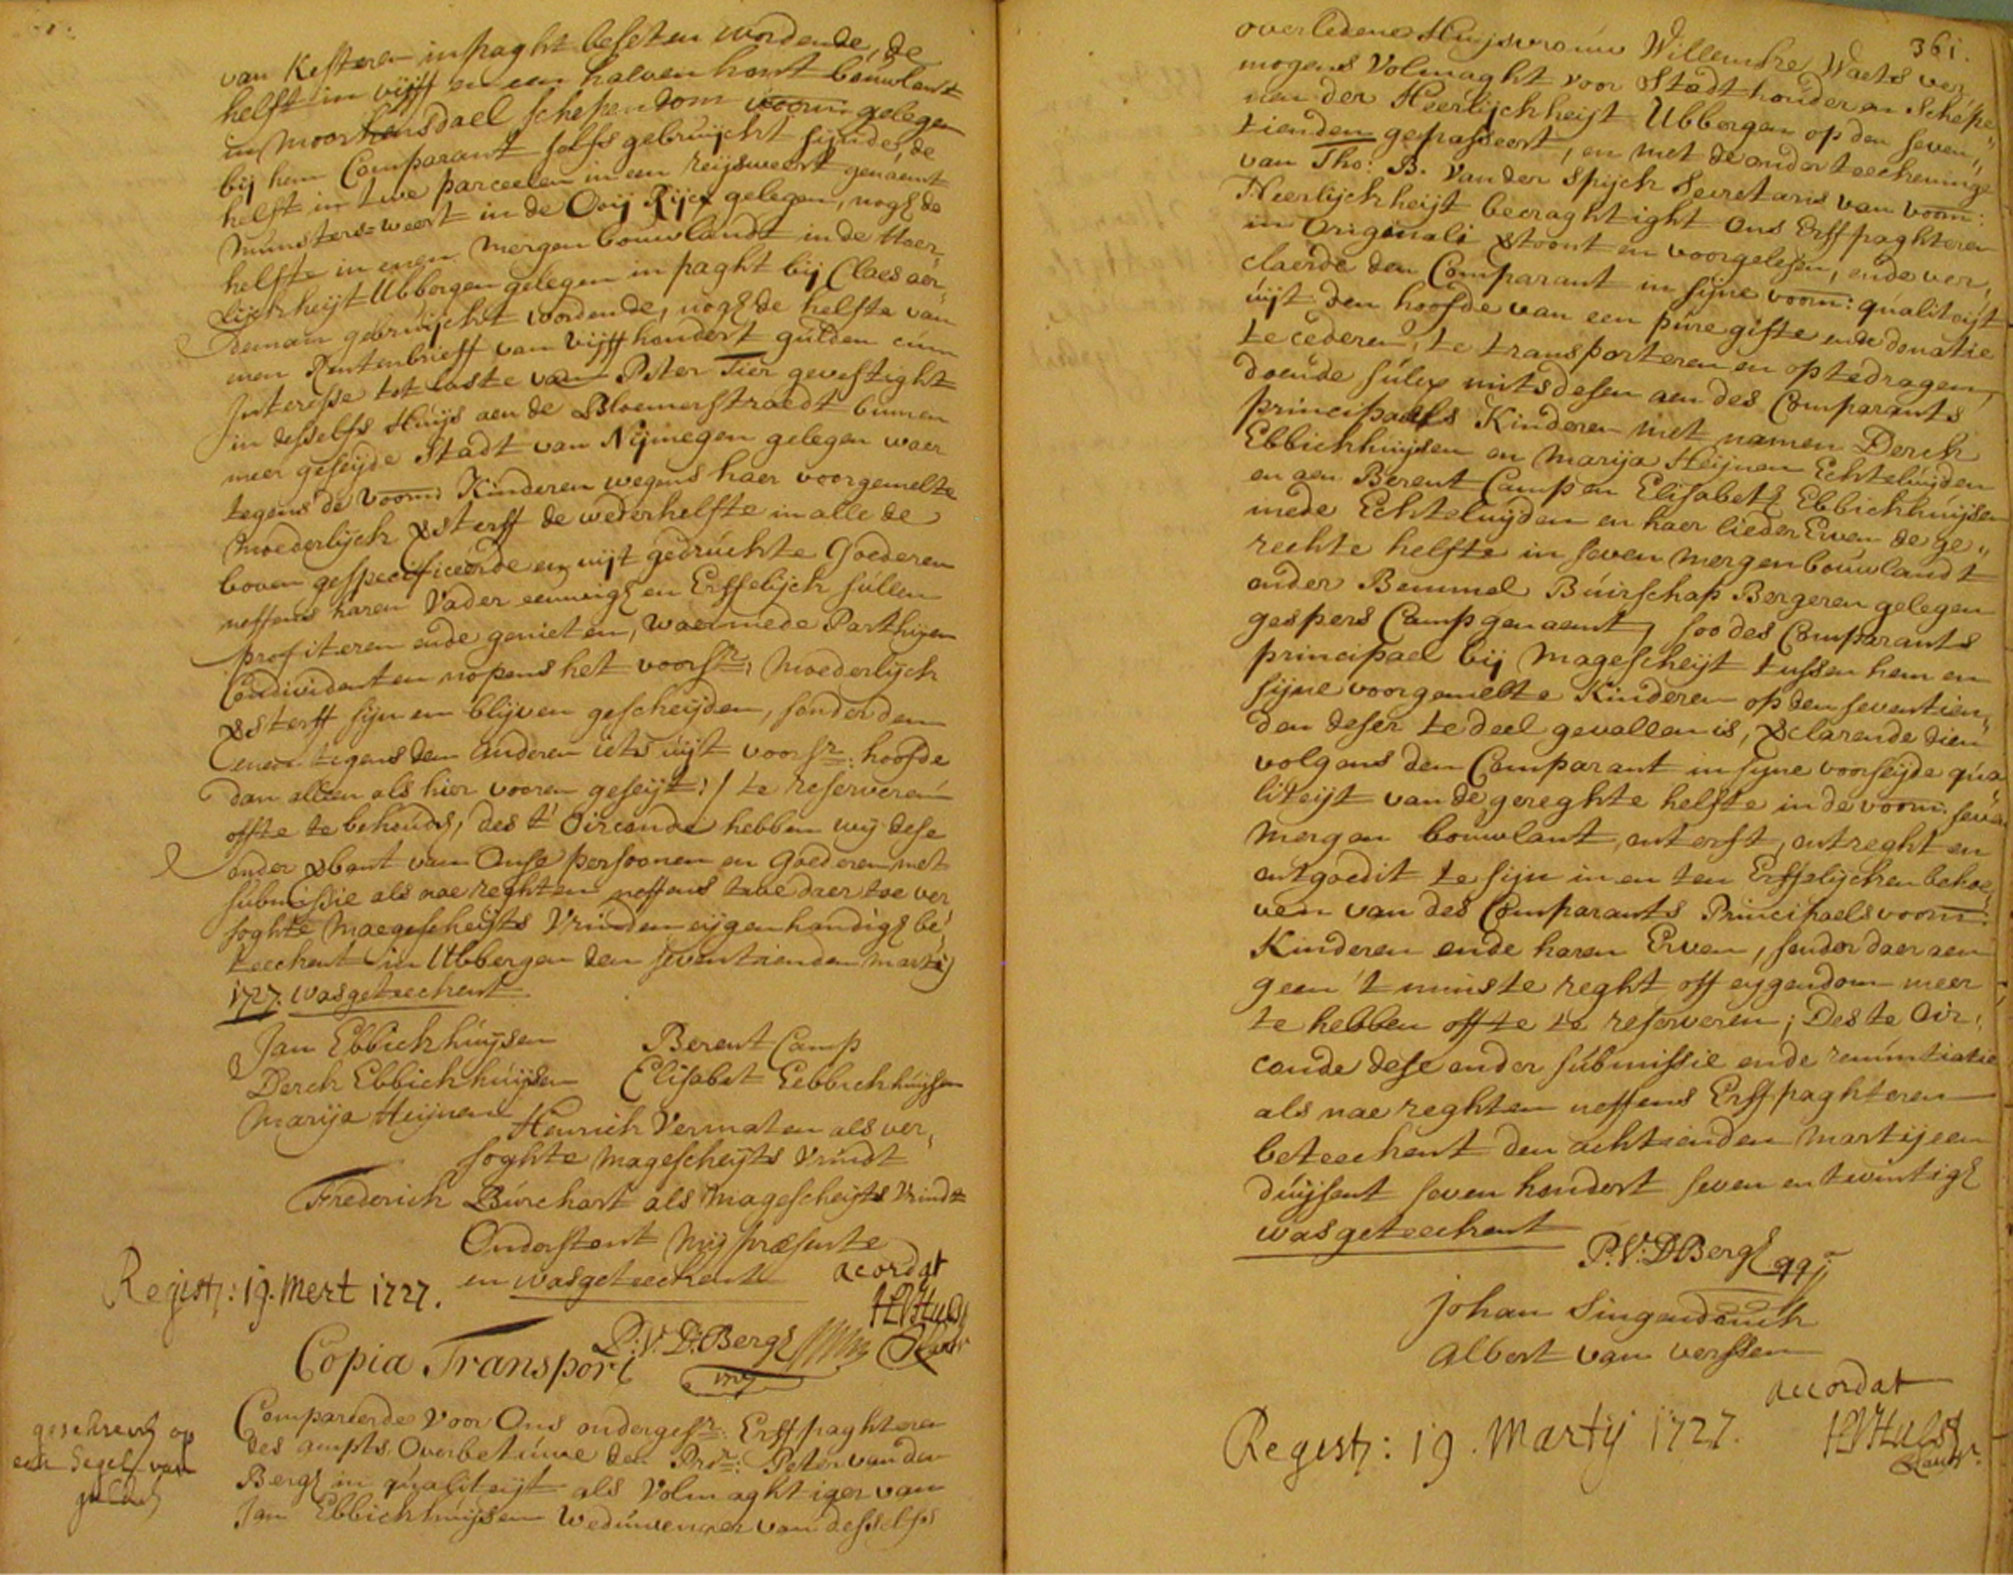 van Kesteren in paght beseten wordende, de
helft in vijff en een halven hont bouwlant
in Moorkensdael schependom voorm gelegen
bij hem Comparant selfs gebruijckt sijnde, de
helft in twe parceelen in een reijsweert genaemt
Munsters=weert in de Ooij Rijck gelegen, nogh de
helfte in eenen mergen bouwlandt in de Heer,,
lijckheijt Ubbergen gelegen in paght bij Claes aer,,
deman gebruijckt wordende, nogh de helfte van
enen Rentenbrieff van vijff hondert gulden cum
Interesse tot laste van Peter Tier gevestight
in desselfs Huijs aen de Bloemerstraedt binnen
meer geseijde Stadt van Nijmegen gelegen waer
tegens de voorm Kinderen wegens haer voorgemelte
Moederlijck versterff de wederhelfte in alle de
boven gespecificeerde en uijt gedruckte Goederen
neffens haren Vader eeuwigh en Erffelijck sullen
profiteren ende genieten, waermede Parthijen
Condividenten nopens het voorsr: Moederlijck
versterff sijn en blijven gescheijden, sonder den
enen tegens den anderen iets uijt voorsr: hoofde
dan alleen als hier vooren geseijt:/ te reserveren
offte te behouds, des t' Oirconde hebben wij dese
onder verbant van Onse persoonen en Goederen met
submissie als nae reghten neffens twe daer toe ver
soghte Maegescheijts Vrinden eijgenhandigh be,
teeckent in Ubbergen den seventienden Martij
1727. was geteeckent
Jan Ebbickhuijsen Berent Camp
Derck Ebbickhuijsen Elisabet Eebbickhuijsen
Marija Heijnen
Henrick Vermaten als ver,
soghte Magescheijts Vrindt
Frederick Burchart als Magescheijts Vrindt
Onderstont Mij præsente
en was geteeckent acordat
Regist: 19. Mert 1727.
P. V. D. Bergh
Copia Transport
geschrevh op
een Segel van
Compareerde voor Ons ondergesr: Erffpaghteren
des ampts Overbetuwe der Pror: Peter van den
Bergh in qualiteijt als Volmaghtiger van
Jan Ebbickhuijsen Weduwenaer van desselfs
361.
overledene Huijsvrouw Willemke Waets ver,
mogens Volmaght voor Stadthouder en Schepe,,
nen der Heerlijckheijt Ubbergen op den seven,,
tienden gepasseert, en met de onderteeckeninge
van Tho: B. van der Spijck Secretaris van voorm:
Heerlijckheijt becraghtight Ons Erffpaghteren
in Originali vertoont en voorgelesen, ende ver,
claerde den Comparant in sijne voorm: qualiteijt
uijt den hoofde van een pure gifte ende donatie
te cederen, te transporteren en op te dragen,
doende sulx mits desen aen des Comparants
principaels Kinderen met namen Derck
Ebbickhuijsen en Marija Heijnen Echteluijden
en aen Berent Camp en Elisabeth Ebbickhuijsen
mede Echteluijden en haer lieder Erven de ge,,
rechte helfte in seven mergen bouwlandt
onder Bemmel Buirschap Bergeren gelegen
gespers Camp genaemt, soo des Comparants
principael bij Magescheijt tussen hem en
sijne voorgemelte Kinderen op den seventien,,
den deser te deel gevallen is, verclarende dien
volgens den Comparant in sijne voorseijde qua
liteijt van de gereghte helfte in de voorm: seven
Mergen bouwlant, onterft, ontreght en
ontgoedit te sijn in en ten Erffelijcken behoe,
ven van des Comparants Principaels voorm:
Kinderen ende haren Erven, sonder daer aen
geen 't minste reght off eygendom meer
te hebben offte te reserveren; Des te Oir,
conde dese onder submissie ende renuntiatie
als nae reghten neffens Erffpaghteren
beteeckent den achtienden Martij een
duijsent seven hondert seven en twintigh
was geteeckent P. V. D Bergh qqr
Johan Singendonck
Albert van verssen
accordat
Regist: 19. Martij 1727.